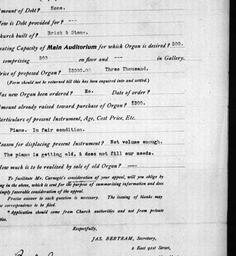 Amount of Debt? None.
How is Debt provided for? ---
Church built of? Brick & Stone.
Seating Capacity of Main Auditorium for which Organ is desired? 500.
comprising 500 on floor and --- in Gallery.
Price of proposed Organ? $3000.00 Three Thousand.
(Form should not be returned till this has been enquired into and settled.)
Has new Organ been ordered? No. Date of order?
Amount already raised toward purchase of Organ? $300.
Particulars of present Instrument, Age, Cost Price, Etc.
Piano. In fair condition.
Reason for displacing present Instrument? Not volume enough.
The piano is getting old, & does not fill our needs.
How much is to be realized by sale of old Organ? ---
To facilitate Mr. Carnegie's consideration of your appeal, will you oblige by
filling in the above, which is used for the purpose of summarizing information and does
imply favorable consideration of the appeal.
Precise answer to each question is necessary. The issuing of blanks may
correspondence to be filed.
*Application should come from Church authorities and not from private
Respectfully,
JAS. BERTRAM, Secretary,
2 East 91st Street,